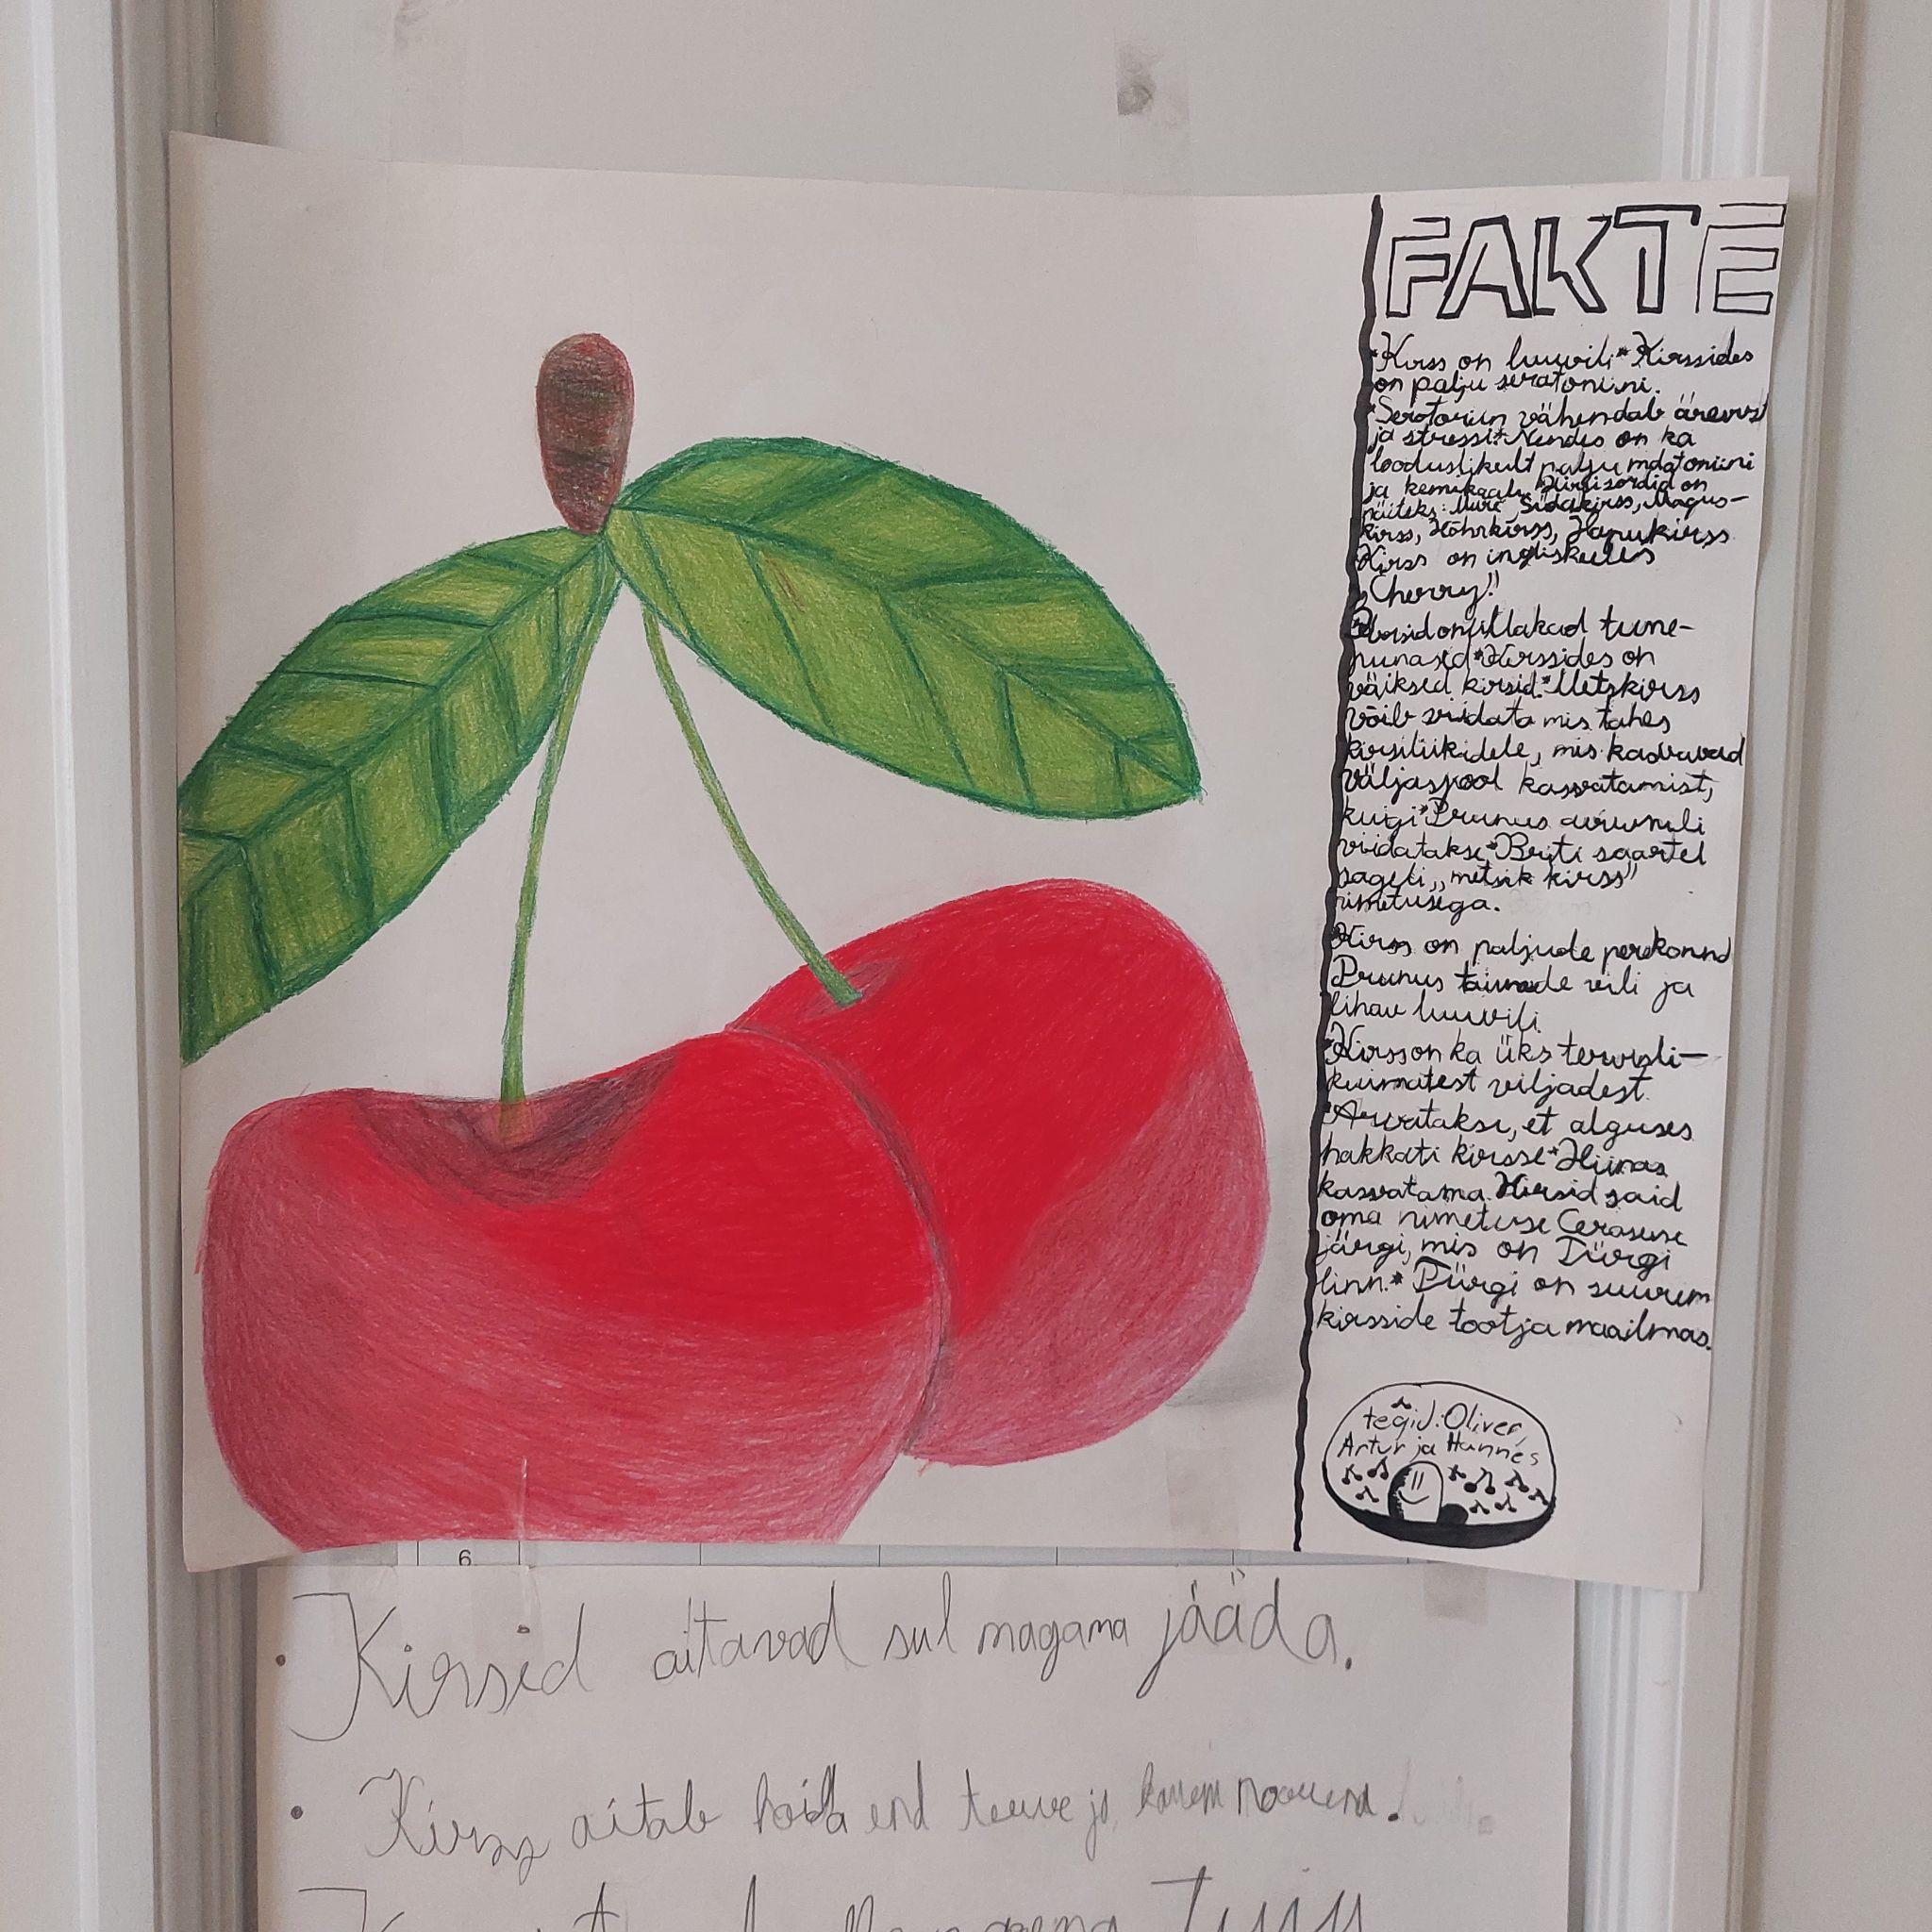 FAKTE
*Kirss on luuvili*Kirssides
on palju seratoniini.
*Serotoniin vähendab ärevust
ja stressi*Nendes on ka
looduslikult palju melatoniini
ja kemikaale
näiteks: Mure, Südakirss, Magus-
kirss, Hapukirss
Kirss on ingliskeeles
"Cherry"
tume-
punased*Kirssides on
väiksed kirsid.*Metskirss
võib viidata mis tahes
kirsiliikidele, mis kasvavad
väljaspool kasvatamist,
kuigi*Prunus aviumili
viidatakse*Briti saartel
sageli „metsik kirss"
nimetusega.
Kirss on paljude perekonnd
Prunus taimede vili ja
lihav luuvili
*Kirss on ka üks tervisli-
kuimatest viljadest
*Arvatakse, et alguses
hakkati kirsse*Hiinas
kasvatama. Kirsid said
oma nimetuse Cerasuse
järgi, mis on Türgi
linn.* Türgi on suurim
kirsside tootja maailmas.
tegid: Oliver,
Artur ja Hannes
6.
• Kirsid aitavad sul magama jääda.
• Kirss aitab hoida end terve ja kauem noorena.